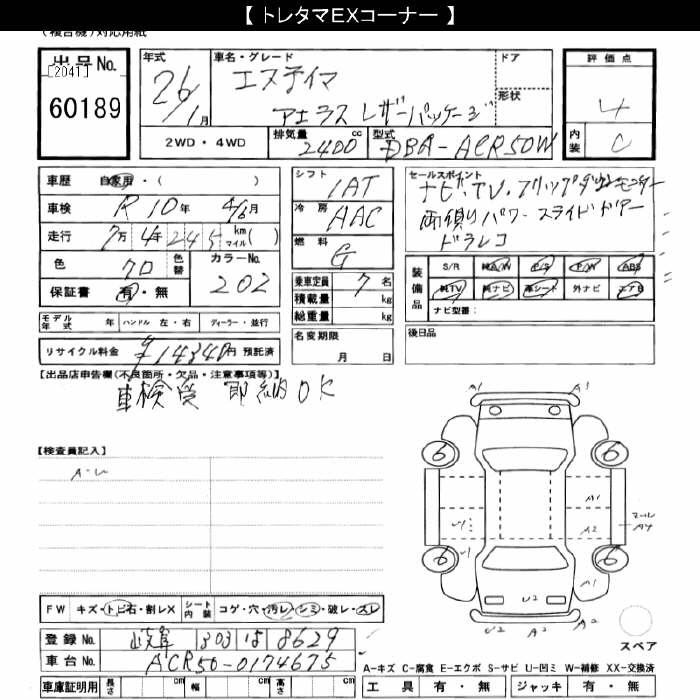 【 トレタマEXコーナー 】
(複合機)対応用紙
出品No.
[2041]
60189
年式 26/1月
車名・グレード エスティマ
アエラス レザーパッケージ
ドア
形状
評価点 4
内装 C
2WD・4WD
排気量 2400 cc
型式 DBA-ACR50W
車歴 自家用・( )
車検 R10年 4/6月
走行 7万4千245 km マイル( )
色 クロ 色替
カラーNo. 202
保証書 有・無
モデル年式 年 ハンドル 左・右 ディーラー・並行
リサイクル料金 ¥14340円 預託済
シフト IAT
冷房 AAC
燃料 G
乗車定員 7名
積載量 kg
総重量 kg
名変期限 月 日
セールスポイント
ナビ・TV・フリップダウンモニター
両側パワースライドドアー
ドラレコ
装備品 S/R 純A/W P/S P/W ABS
純TV 純ナビ 革シート 外ナビ エアB
ナビ型番:
後日品
【出品店申告欄(不良箇所・欠品・注意事項等)】
車検受 即納OK
【検査員記入】
A・U
A1 A3
6 6
A1
U1 A2
U1
6 6
A1
U2
U2 A2 A2
スペア
FW キズ・トビ石・割レX シート内装 コゲ・穴・汚レ・シミ・破レ・スレ
登録No. 岐阜 303 は 8629
車台No. ACR50-0174675
車庫証明用 長さ cm 幅 cm 高さ cm
A-キズ C-腐食 E-エクボ S-サビ U-凹ミ W-補修 XX-交換済
工具 有・無 ジャッキ 有・無